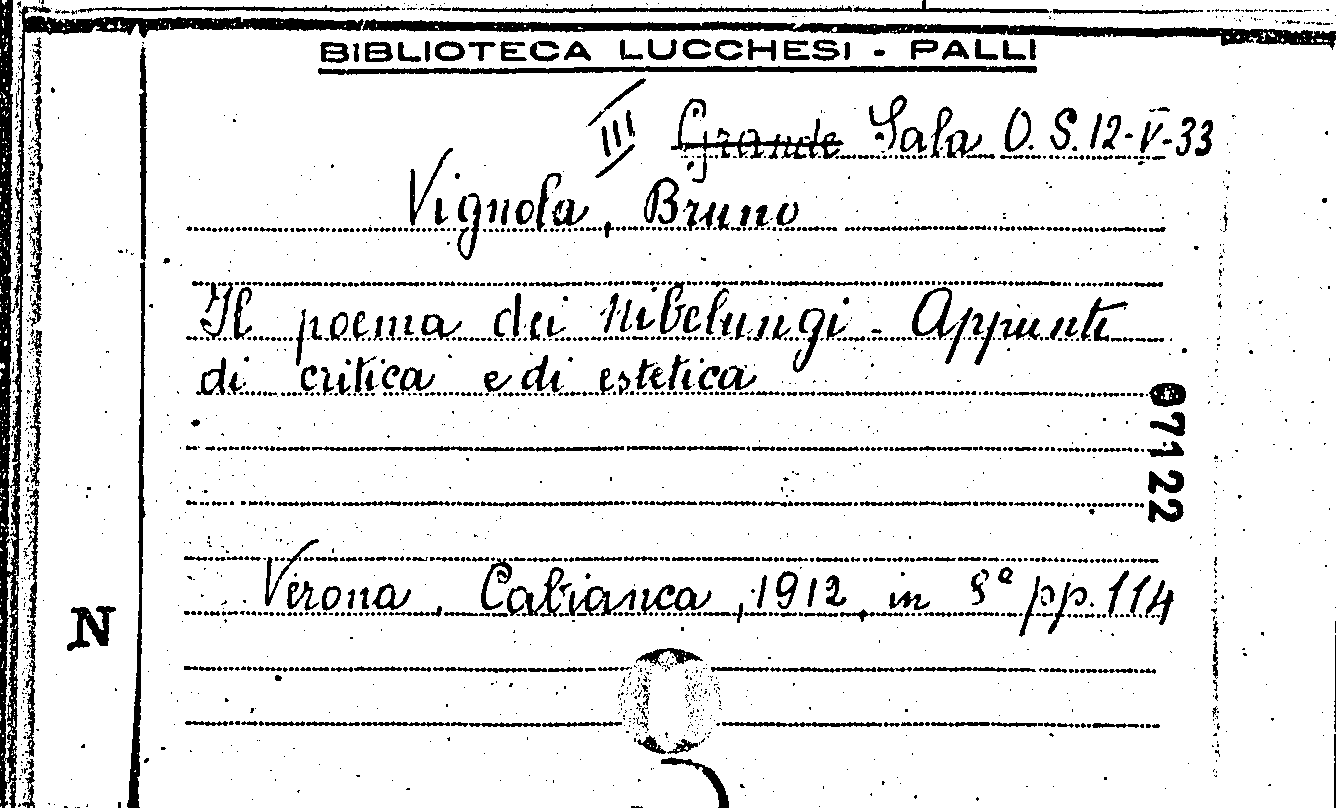 BIBLIOTECA LUCCHESI - PALLI
III Grande Sala O. S. 12-V-33
Vignola, Bruno
Il poema dei Nibelungi - Appunti
di critica e di estetica
07122
Verona, Cabianca, 1912, in 8ª pp. 114
N